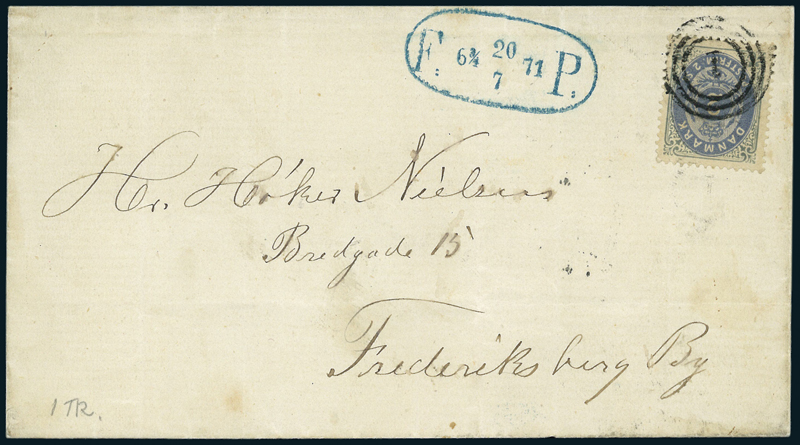 F. 6¾ 20/7 71 P.
1
DANMARK
Hr. Höker Nielsen
Bredgade 15
Frederiksberg By
1 TR.